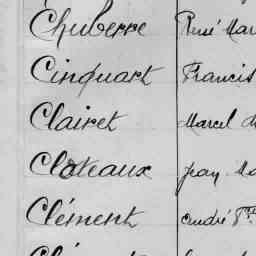 Chuberre René Mar
Cinquart Francis
Clairet Marcel
Cloteaux Jean Ma
Clément André